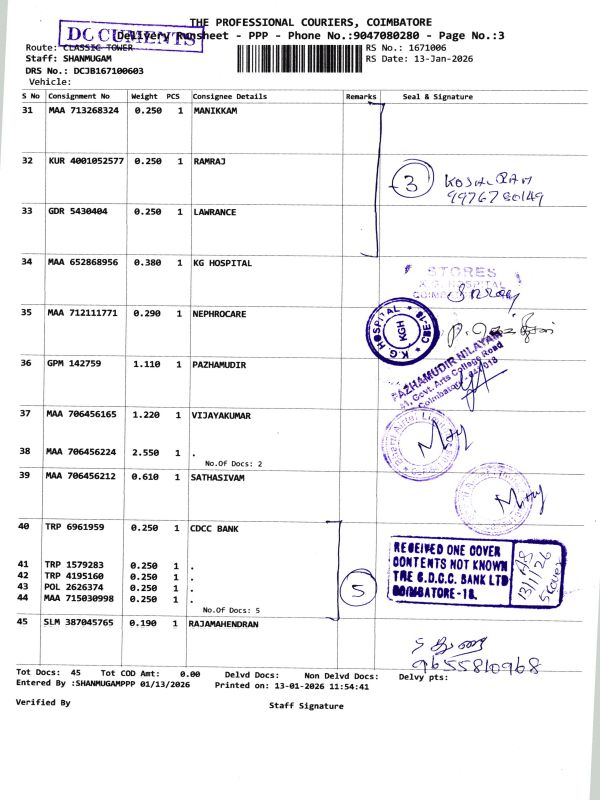 THE PROFESSIONAL COURIERS, COIMBATORE
DOCUMENTS
Delivery Runsheet - PPP - Phone No.:9047080280 - Page No.:3
Route: CLASSIC TOWER
RS No.: 1671006
Staff: SHANMUGAM
RS Date: 13-Jan-2026
DRS No.: DCJB167100603
Vehicle:
S No Consignment No Weight PCS Consignee Details Remarks Seal & Signature
31 MAA 713268324 0.250 1 MANIKKAM
32 KUR 4001052577 0.250 1 RAMRAJ
3
9976780149
33 GDR 5430404 0.250 1 LAWRANCE
34 MAA 652868956 0.380 1 KG HOSPITAL
STORES
35 MAA 712111771 0.290 1 NEPHROCARE
K.G HOSPITAL
KGH
CBE-18
36 GPM 142759 1.110 1 PAZHAMUDIR
PAZHAMUDIR NILAYAM
Govt. Arts College Road
Coimbatore
37 MAA 706456165 1.220 1 VIJAYAKUMAR
38 MAA 706456224 2.550 1 .
No.Of Docs: 2
39 MAA 706456212 0.610 1 SATHASIVAM
40 TRP 6961959 0.250 1 CDCC BANK
RECEIVED ONE COVER
CONTENTS NOT KNOWN
THE C.D.C.C. BANK LTD
COIMBATORE-18.
13/1/26
5 Cover
41 TRP 1579283 0.250 1 .
42 TRP 4195160 0.250 1 .
43 POL 2626374 0.250 1 .
44 MAA 715030998 0.250 1 .
5
No.Of Docs: 5
45 SLM 387045765 0.190 1 RAJAMAHENDRAN
9655810968
Tot Docs: 45 Tot COD Amt: 0.00 Delvd Docs: Non Delvd Docs: Delvy pts:
Entered By :SHANMUGAMPPP 01/13/2026 Printed on: 13-01-2026 11:54:41
Verified By
Staff Signature